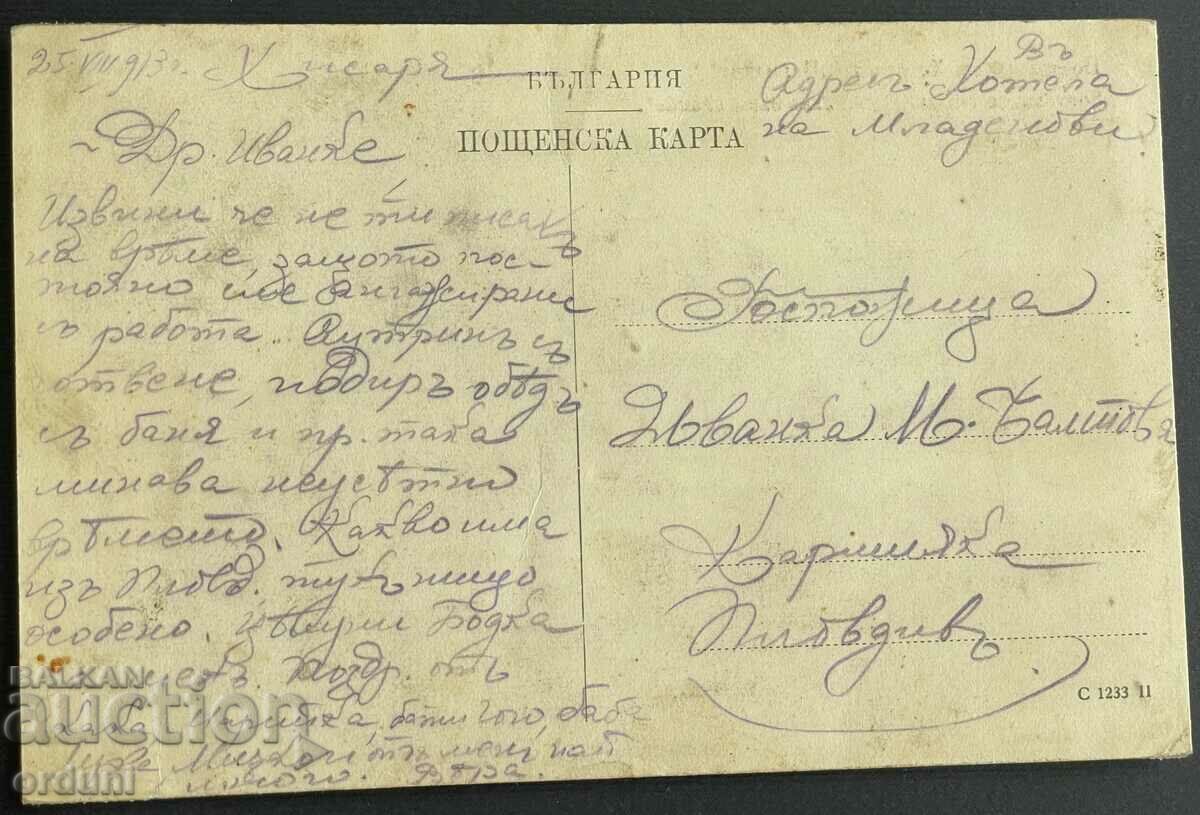 25 VIII 913 г. Хисаря
БЪЛГАРИЯ
ПОЩЕНСКА КАРТА
Въ
Адресъ Хотела
на Младенови
Др. Иванке
Извини че не ти писахъ
на врѣме, защото пос-
тояно сме бангажирани
съ работа. Сутринь съ
отвене, подиръ обѣдъ
съ баня и пр. така
минава неусѣтно
врѣмето. Какво има
изъ Пловд. тукъ нищо
особено. Цѣлуни Бодка
Поздр. отъ
кака Марийка, бати Гого, баба
Мицка и отъ мене най
много. Вѣра.
Госпожица
Иванка М. Балтова
Каршияка
Пловдивъ
С 1233 II
BALKAN
auction
orduni